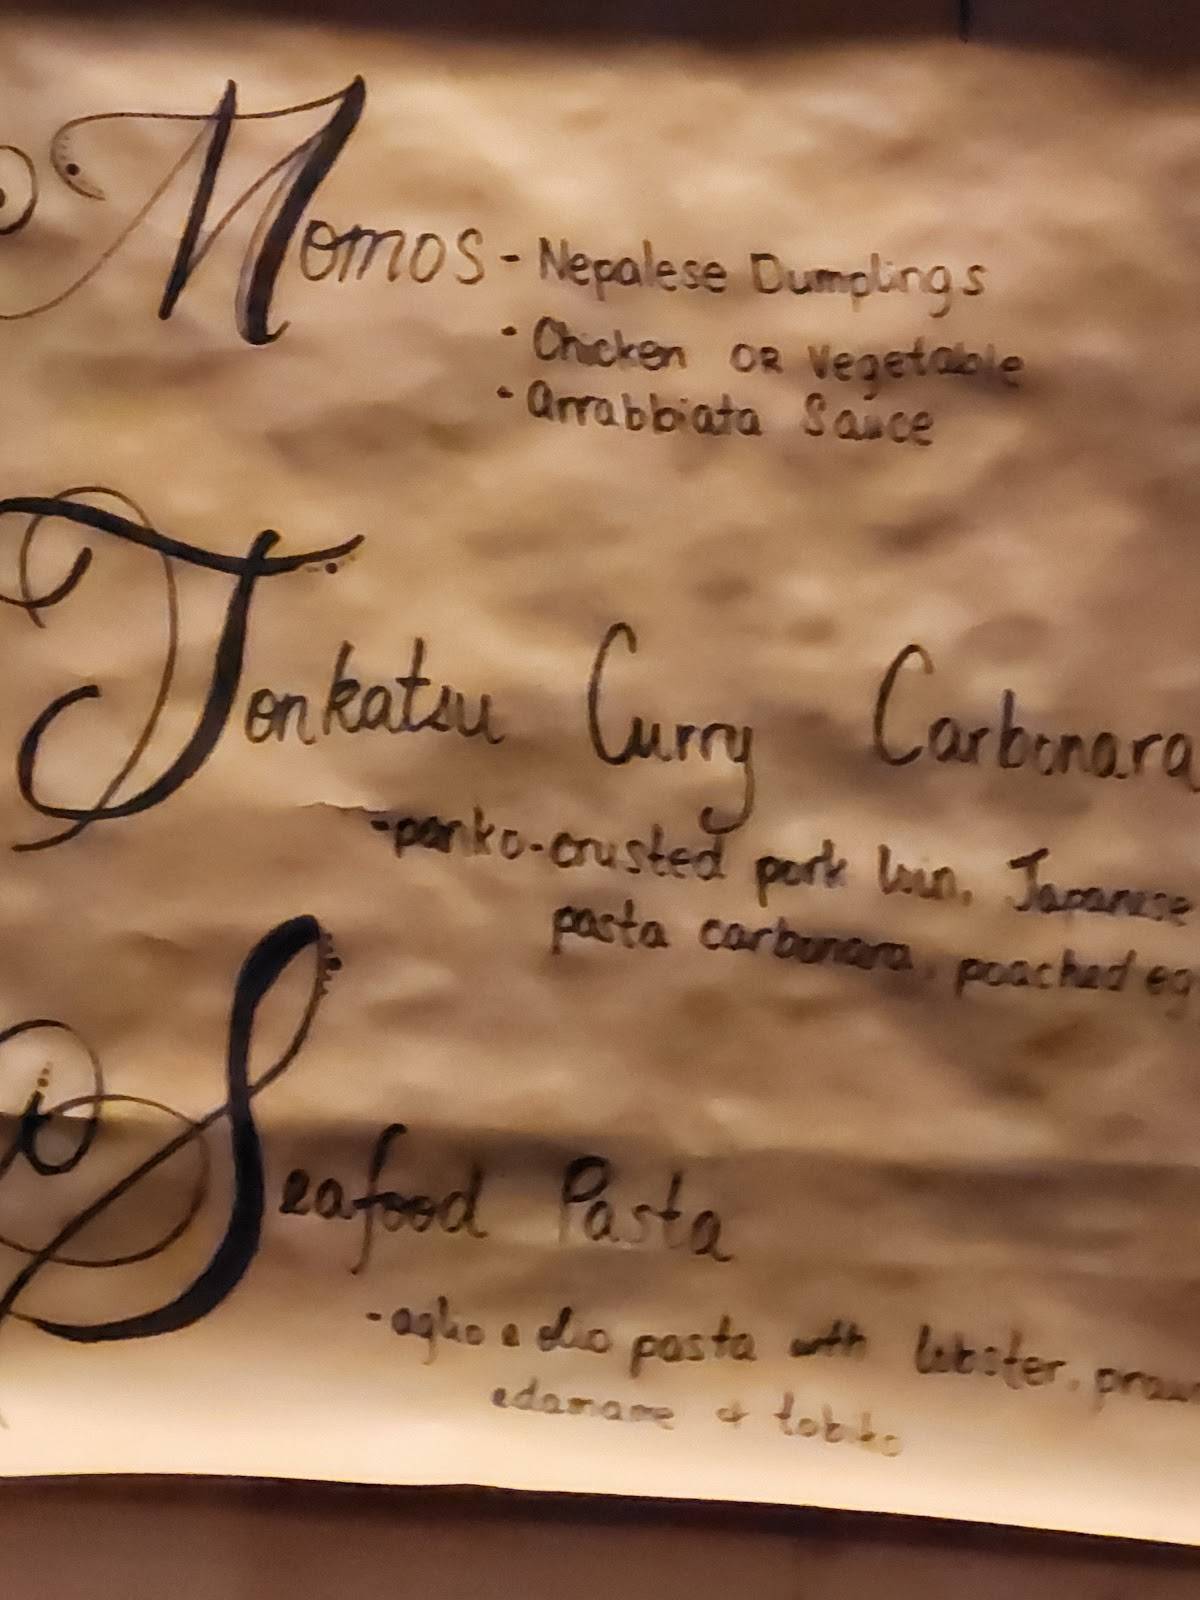 Momos - Nepalese Dumplings
· Chicken OR Vegetable
· Arrabbiata Sauce
Tonkatsu Curry Carbonara
-panko-crusted pork loin, Japanese
pasta carbonara, poached eg
Seafood Pasta
-aglio e olio pasta with lobster, prawn
edamame & tobiko